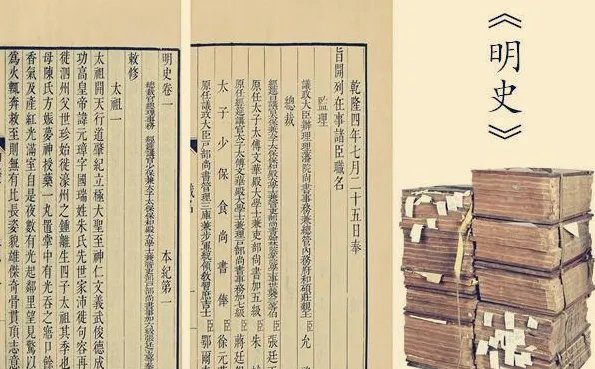 《明史》
乾隆四年七月二十五日奉
旨開列在事諸臣職名
監理
議政大臣辦理理藩院尚書事務兼總管內務府和碩莊親王臣允
總裁
張廷
原任太子太傅文華殿大學士兼吏部尚書加五級臣朱
原任經筵講官太子太傅文華殿大學士兼理戶部尚書事務加七級臣蔣廷
太子少保食尚書俸臣徐元
原任議政大臣戶部尚書管理三庫兼步軍統領教習庶吉士臣鄂爾
明史卷一 本紀第一
總裁官總理事務 經筵講官少保兼太子太保保和殿大學士兼管吏部戶部尚書事加六級張廷玉等奉
敕修
太祖一
太祖開天行道肇紀立極大聖至神仁文義武俊德成
功高皇帝諱元璋字國瑞姓朱氏先世家沛徙句容再
徙泗州父世珍始徙濠州之鍾離生四子太祖其季也
母陳氏方娠夢神授藥一丸置掌中有光吞之寤口餘
香氣及產紅光滿室自是夜數有光起鄰里望見驚以
為火輒奔救至則無有比長姿貌雄傑奇骨貫頂志意